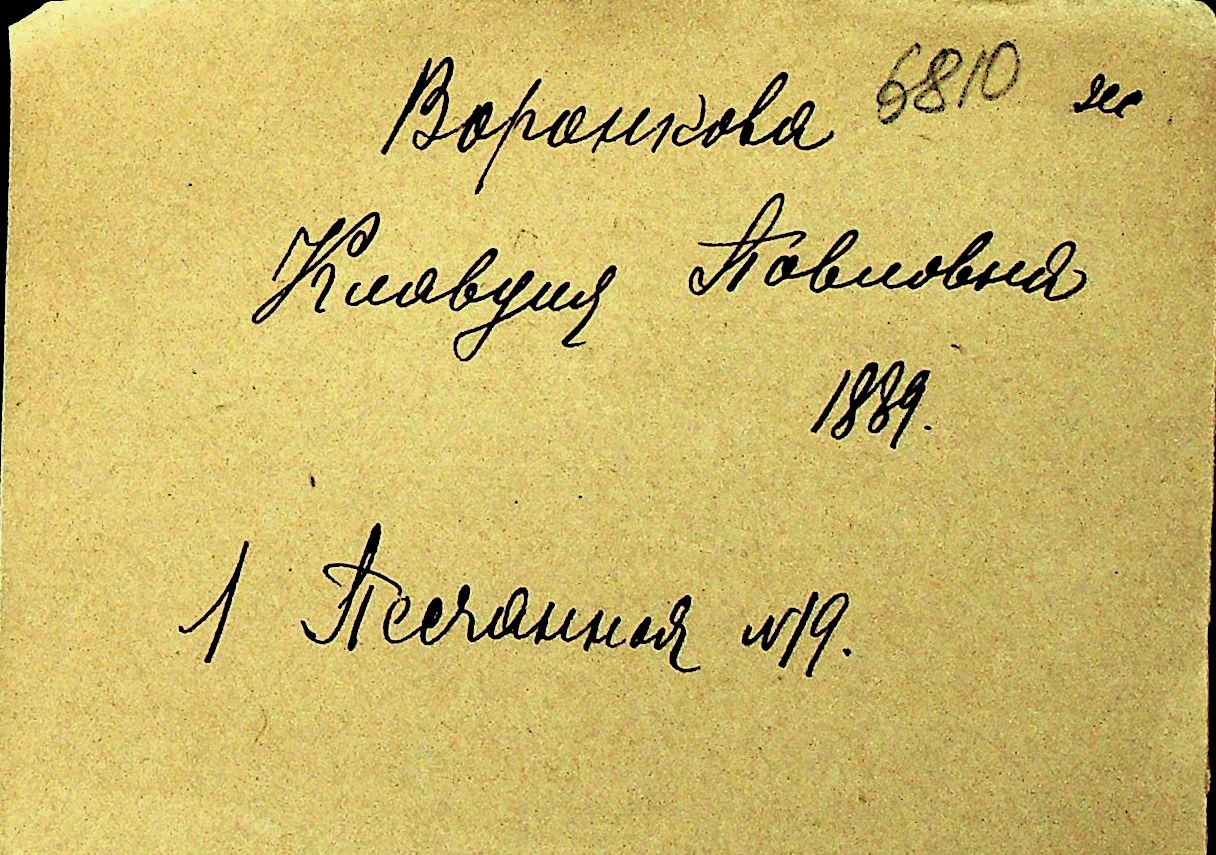 Воронкова 6810 ж
Клавдия Павловна
1889.
1 Песчанная №19.